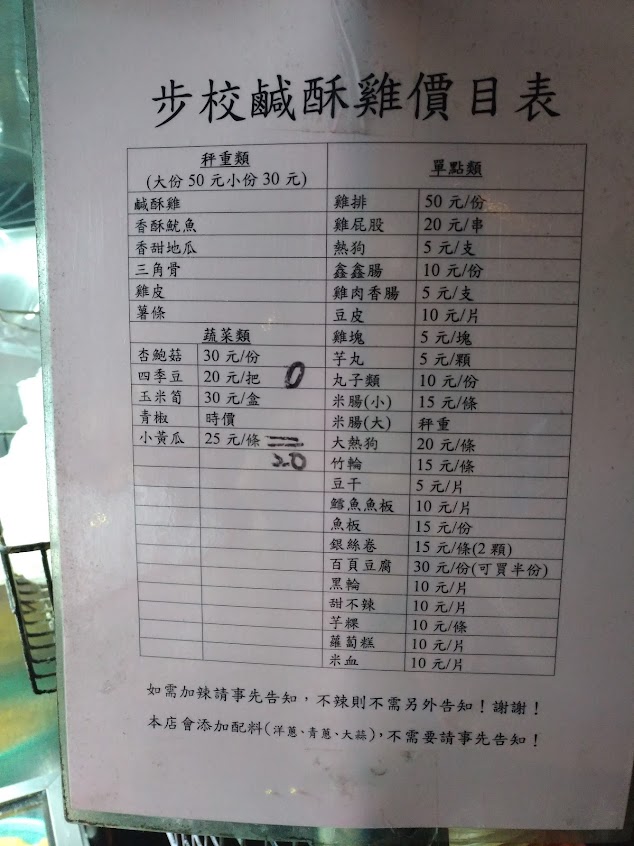 步校鹹酥雞價目表
秤重類
(大份 50 元小份 30 元)
鹹酥雞
香酥魷魚
香甜地瓜
三角骨
雞皮
薯條
蔬菜類
杏鮑菇 30 元/份
四季豆 20 元/把 0
玉米筍 30 元/盒
青椒 時價
小黃瓜 25 元/條
20
單點類
雞排 50 元/份
雞屁股 20 元/串
熱狗 5 元/支
鑫鑫腸 10 元/份
雞肉香腸 5 元/支
豆皮 10 元/片
雞塊 5 元/塊
芋丸 5 元/顆
丸子類 10 元/份
米腸(小) 15 元/條
米腸(大) 秤重
大熱狗 20 元/條
竹輪 15 元/條
豆干 5 元/片
鱈魚魚板 10 元/片
魚板 15 元/份
銀絲卷 15 元/條(2 顆)
百頁豆腐 30 元/份(可買半份)
黑輪 10 元/片
甜不辣 10 元/片
芋粿 10 元/條
蘿蔔糕 10 元/片
米血 10 元/片
如需加辣請事先告知，不辣則不需另外告知！謝謝！
本店會添加配料(洋蔥、青蔥、大蒜)，不需要請事先告知！